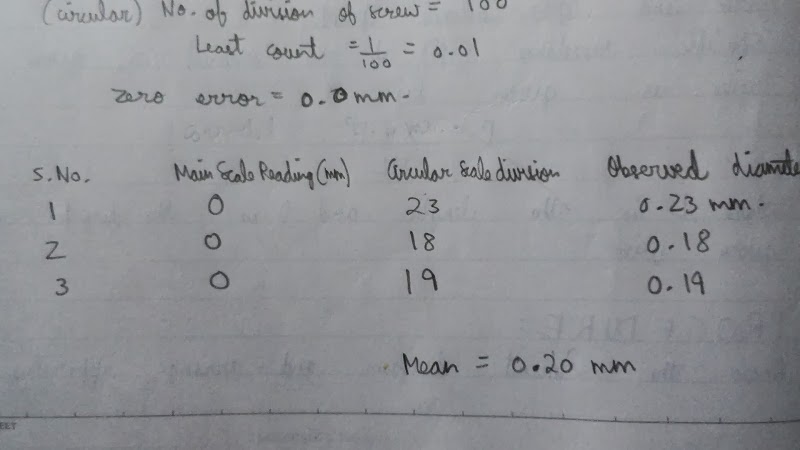 (circular) No. of division of screw = 100
Least count = 1/100 = 0.01
Zero error = 0.0 mm.
S.No. Main Scale Reading (mm) Circular Scale division Observed diamete
1 0 23 0.23 mm.
2 0 18 0.18
3 0 19 0.19
Mean = 0.20 mm
EET